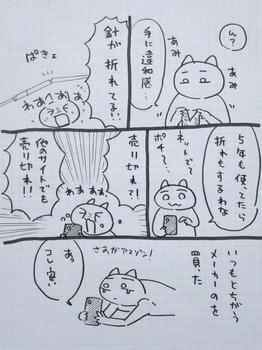 ん?
あみ
あみ
手に違和感…
針が
折れてる!!
ぱきょ
わあ〜わあ〜
5年も使ってたら
折れもするわな
ネットで
ポチ〜
売り切れ?!
わぁぁぁ
他のサイトでも
売り切れ!!
いつもとちがう
メーカーのを
買った
さすがアマゾン!
あ。
コレ安い